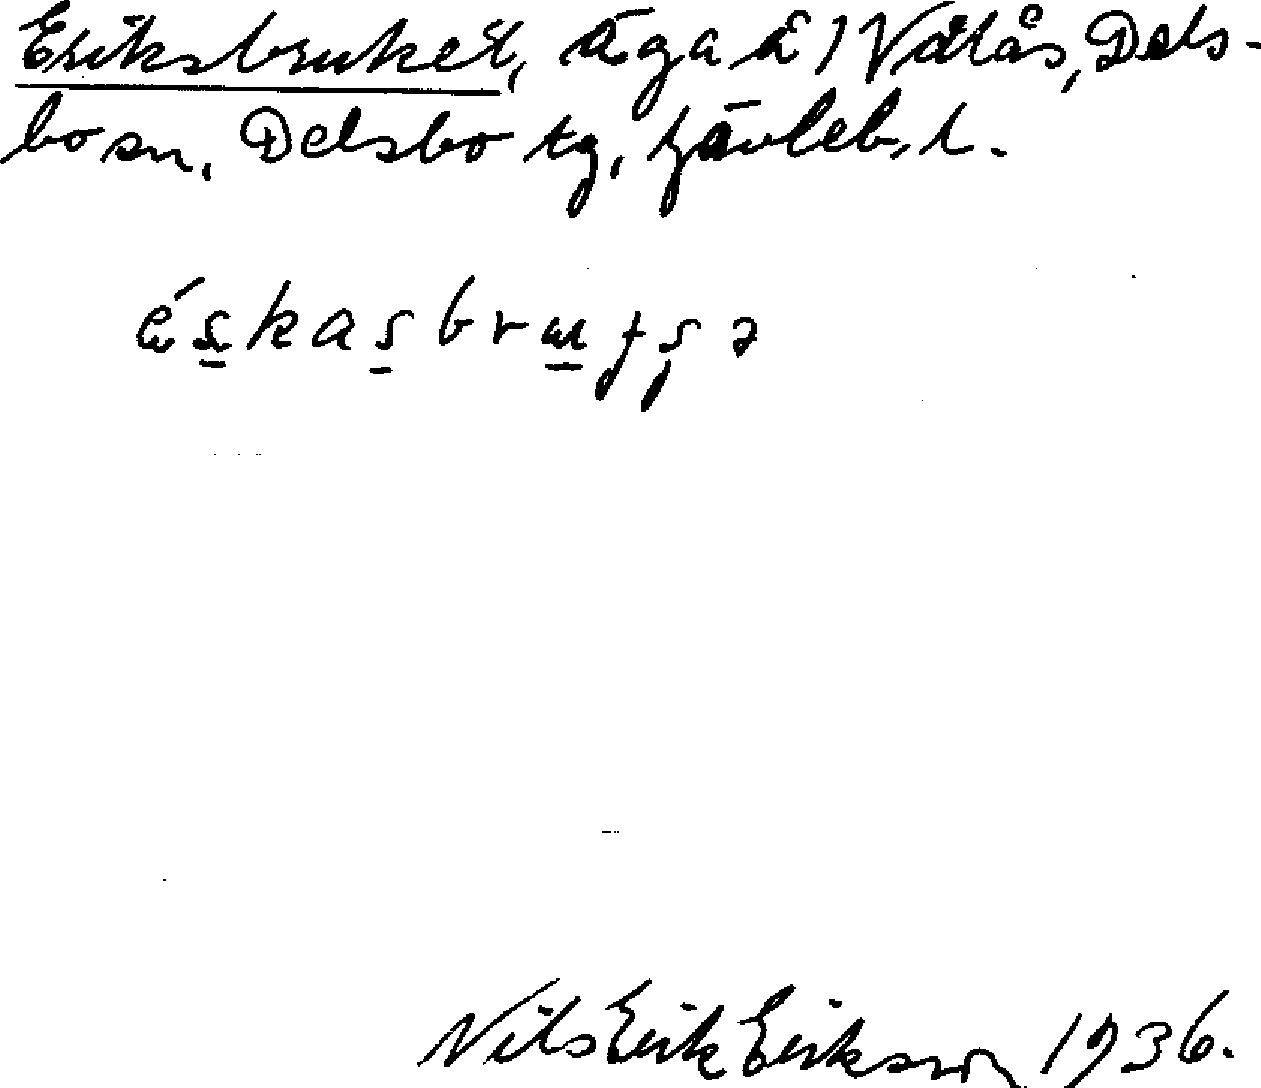 Eriksbruket, äga å 1 Vålås, Dels-
bo sn, Delsbo tg, Gävleb. l.
Nils Erik Erikson 1936.